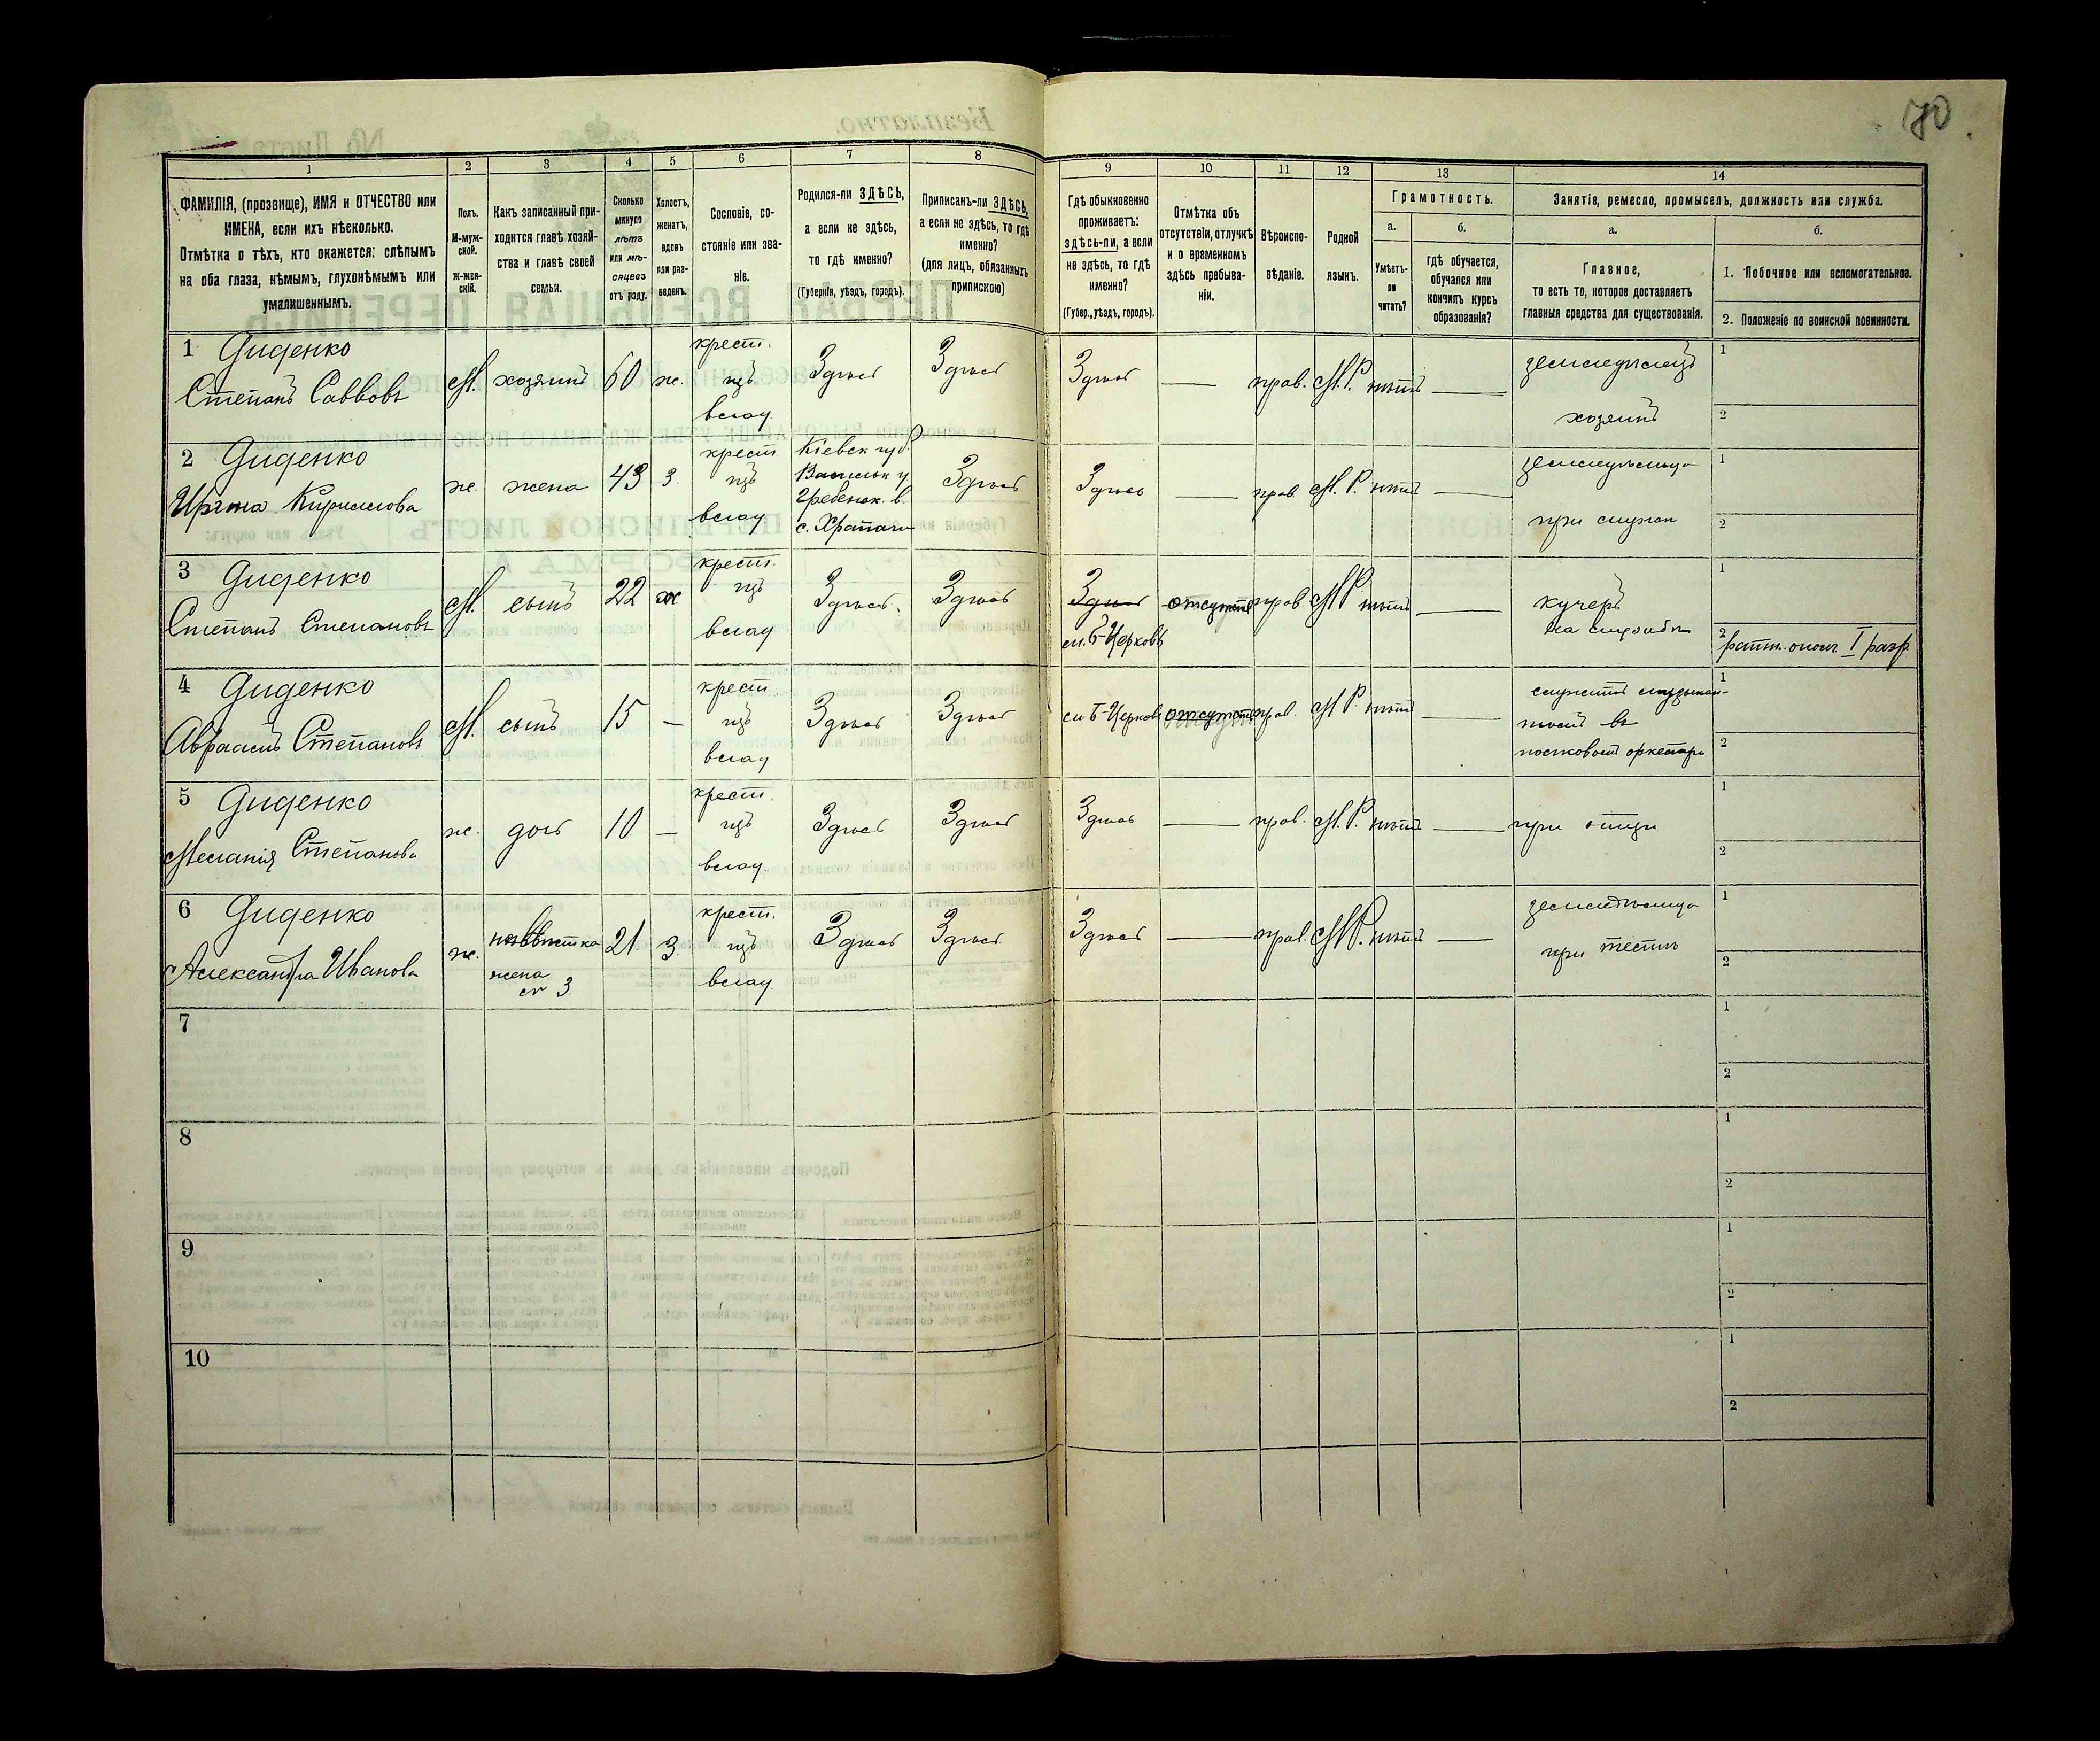 70
1
2
3
4
5
6
7
8
9
10
11
12
13
14
ФАМИЛІЯ, (прозвище), ИМЯ и ОТЧЕСТВО или
ИМЕНА, если ихъ нѣсколько.
Отмѣтка о тѣхъ, кто окажется: слѣпымъ
на оба глаза, нѣмымъ, глухонѣмымъ или
умалишеннымъ.
Полъ.
М-муж-
ской.
ж-жен-
скій.
Какъ записанный при-
ходится главѣ хозяй-
ства и главѣ своей
семьи.
Сколько
минуло
лѣтъ
или мѣ-
сяцевъ
отъ роду.
Холостъ,
женатъ,
вдовъ
или раз-
веденъ.
Сословіе, со-
стояніе или зва-
ніе.
Родился-ли ЗДѢСЬ,
а если не здѣсь,
то гдѣ именно?
(Губернія, уѣздъ, городъ).
Приписанъ-ли ЗДѢСЬ,
а если не здѣсь, то гдѣ
именно?
(для лицъ, обязанныхъ
припискою)
Гдѣ обыкновенно
проживаетъ:
здѣсь-ли, а если
не здѣсь, то гдѣ
именно?
(Губер., уѣздъ, городъ).
Отмѣтка объ
отсутствіи, отлучкѣ
и о временномъ
здѣсь пребыва-
ніи.
Вѣроиспо-
вѣданіе.
Родной
языкъ.
Грамотность.
а.
Умѣетъ-
ли
читать?
б.
гдѣ обучается,
обучался или
кончилъ курсъ
образованія?
Занятіе, ремесло, промыселъ, должность или служба.
а.
Главное,
то есть то, которое доставляетъ
главныя средства для существованія.
б.
1. Побочное или вспомогательное.
2. Положеніе по воинской повинности.
1 Диденко
Степанъ Саввовъ
М.
хозяинъ
60
ж.
крест.
изъ
влад.
Здѣсь
Здѣсь
Здѣсь
—
прав.
М.Р.
нѣтъ
—
земледѣлецъ
хозяинъ
1
2
2 Диденко
Ирина Кириллова
ж.
жена
43
з.
крест
изъ
влад
Кіевск губ.
Васильк у
Гребенск. в.
Здѣсь
Здѣсь
—
прав
М. Р.
нѣтъ
—
земледѣлица
при мужѣ
1
2
3 Диденко
Степанъ Степановъ
М.
сынъ
22
ж
крест.
изъ
влад
Здѣсь.
Здѣсь
Здѣсь
м. Б-Церковь
отсутств
прав.
М Р
нѣтъ
—
кучеръ
на службѣ
1
2 ратн. опол. I разр
4 Диденко
Авраамъ Степановъ
М.
сынъ
15
—
крест
изъ
влад
Здѣсь
Здѣсь
м Б-Церковь
отсутств
прав.
М Р.
нѣтъ
—
служитъ музыкан-
томъ въ
полковомъ оркестрѣ
1
2
5 Диденко
Меланія Степанова
ж.
дочь
10
—
крест.
изъ
влад
Здѣсь
Здѣсь
Здѣсь
—
прав.
М. Р.
нѣтъ
—
при отцѣ
1
2
6 Диденко
Александра Иванова
ж.
невѣстка
жена
3
21
з.
крест.
изъ
влад.
Здѣсь
Здѣсь
Здѣсь
—
прав.
М Р.
нѣтъ
—
земледѣлица
при тестѣ
1
2
7
1
2
8
1
2
9
1
2
10
1
2